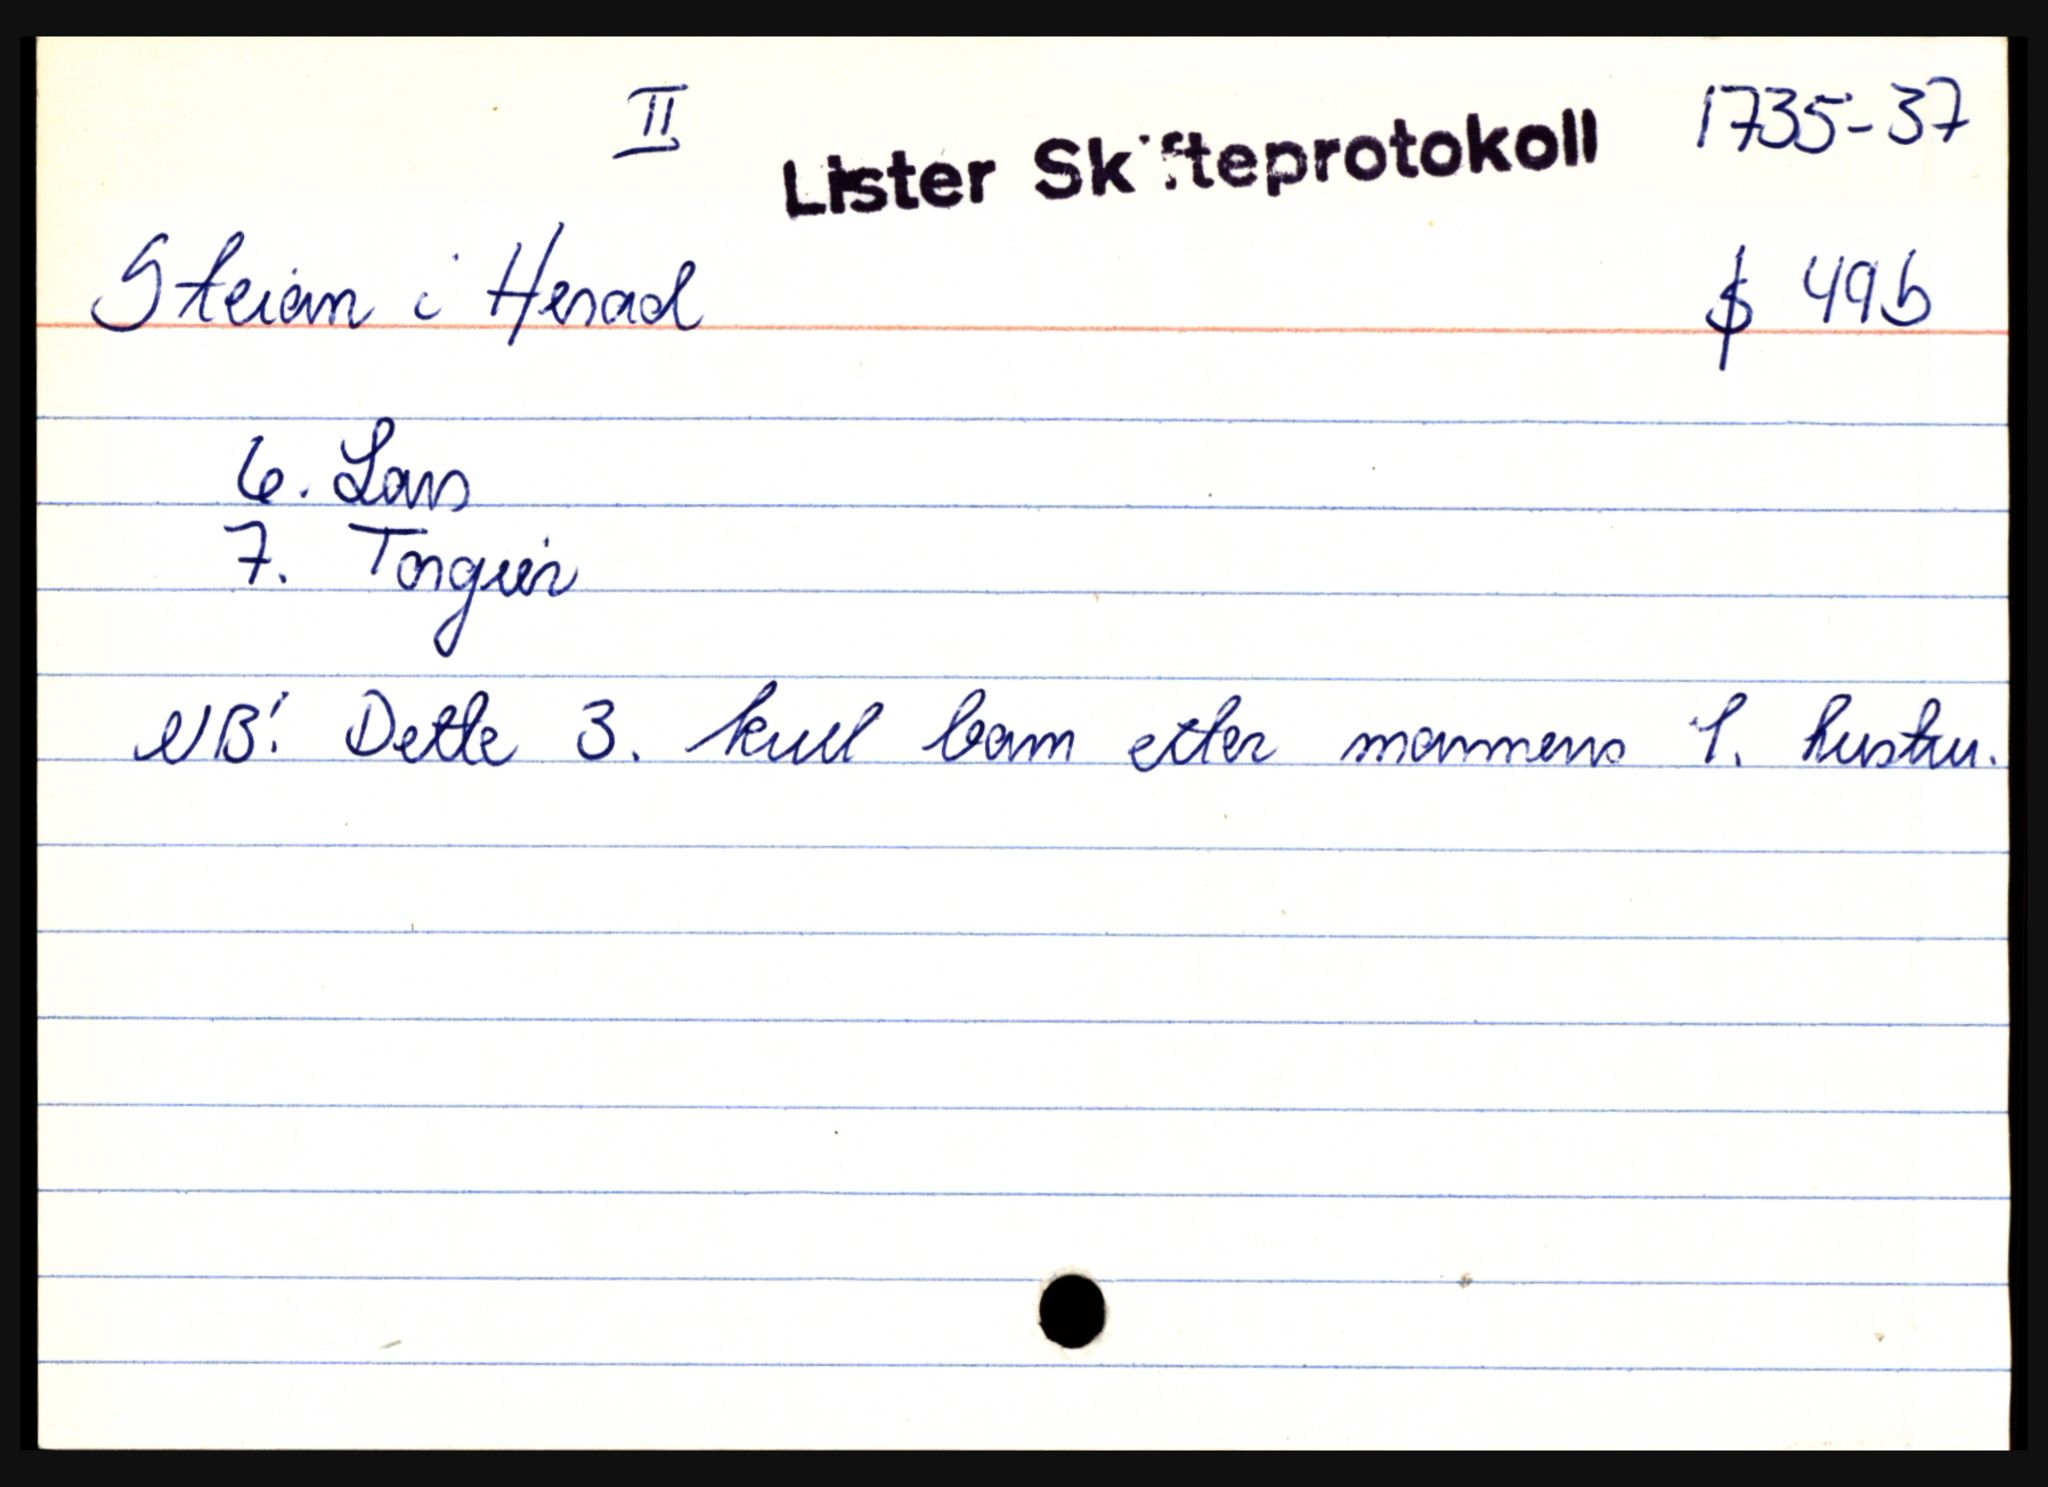 II
Lister Skifteprotokoll
1735-37
Steian i Herad
$ 49b
6. Lars
7. Torgier
NB! Dette 3. kull barn etter mannens 1. hustru.